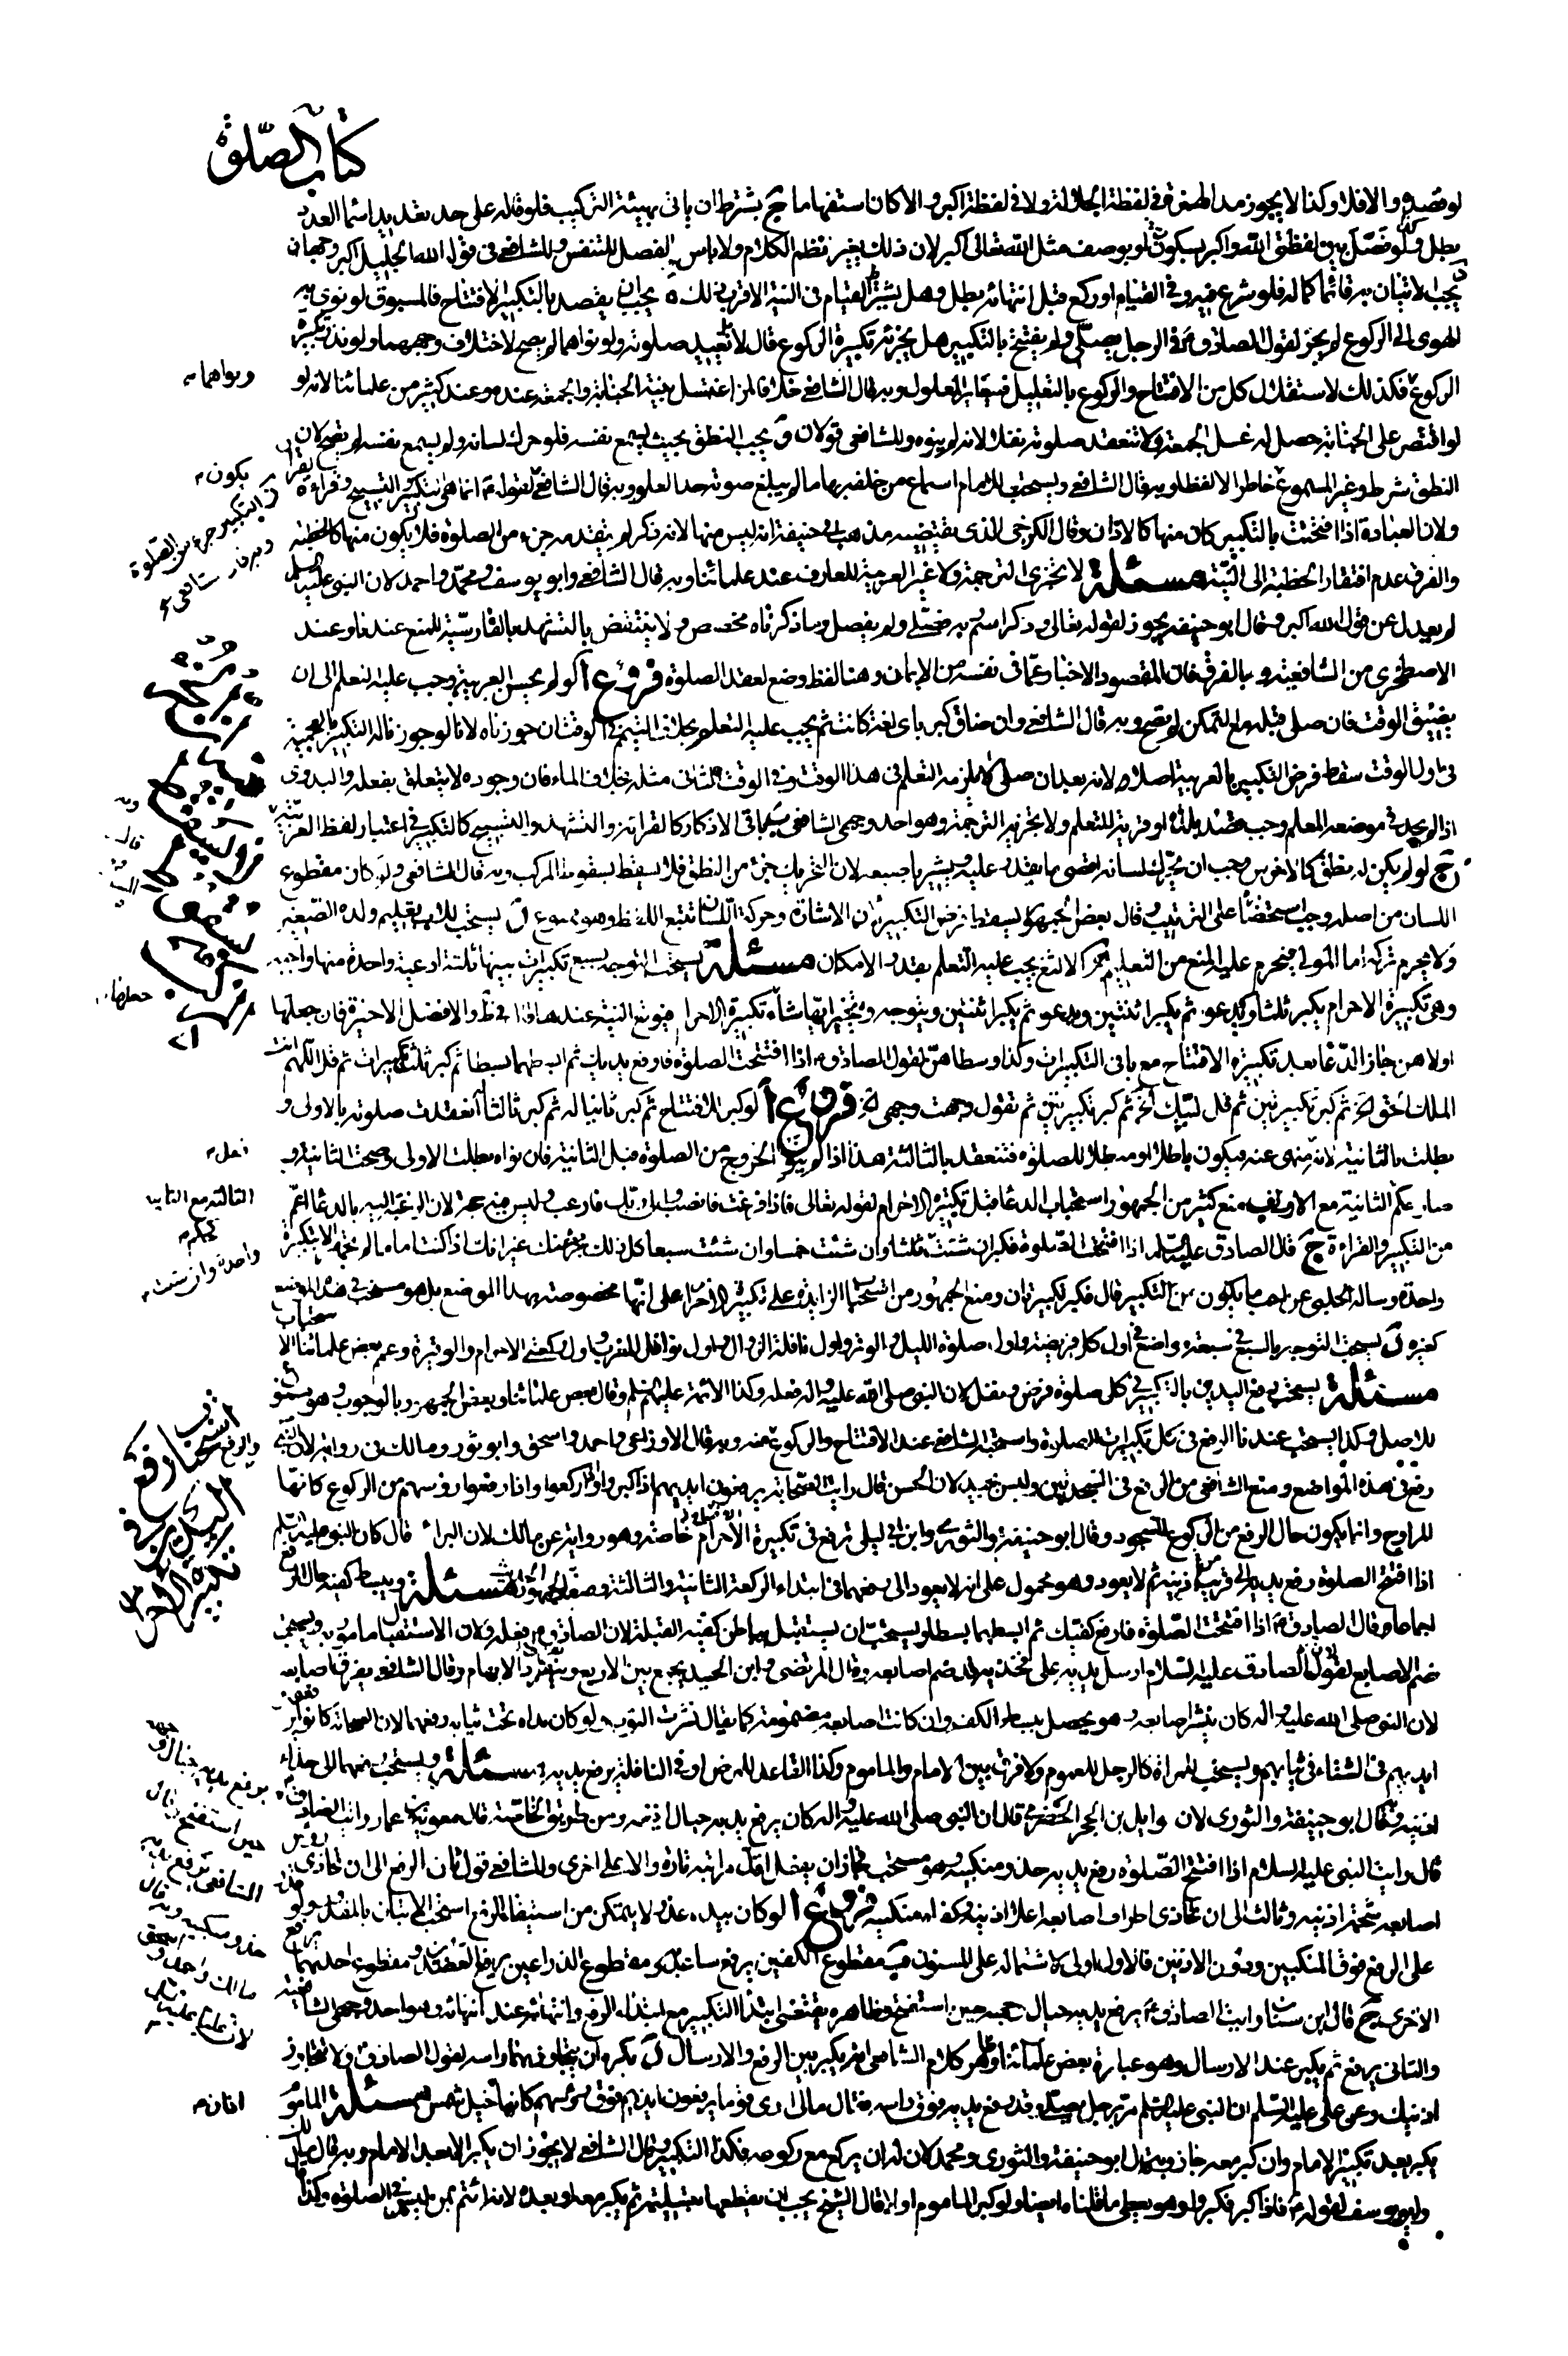 كتاب الصلوة
لو قصده والا فلا وكذا لا يجوز مد الهمزة في لفظة الجلالة ولا في لفظة اكبر والا كان استفهاما ج يشترط ان ياتي بهيئة التركيب فلو قاله على حد تعديد اسماء العدد
بطل ولو فصل بين لفظتي الله واكبر بسكوت او بوصف مثل الله تعالى اكبر لان ذلك يغير نظم الكلام ولا باس الفصل للتنفس وللشافعي في قوله الله الجليل اكبر وجهان
يجب الاتيان به قائما كماله فلو شرع فيه وفي القيام او ركع قبل انتهائه بطل وهل يشترط القيام في النية الاقرب ذلك يجب ان يقصد بالتكبير الافتتاح فالمسبوق لو نوى به
الهوي الى الركوع لم يجز لقول الصادق في الرجل يصلي ولم يفتتح بالتكبير هل يجزئه تكبيرة الركوع قال لا يعيد صلوته ولو نواهما لم يصح لاختلاف وجههما ولو نذر تكبيرة
الركوع فكذلك لاستقلال كل من الافتتاح والركوع بالتعليل فيتغاير المعلول وبه قال الشافعي خلافا لمن اغتسل بنية الجنابة والجمعة عنده وعند كثير من علمائنا لانه لو
لو اقتصر على الجنابة حصل له غسل الجمعة ولا تنعقد صلوته نفلا لانه لم ينوه وللشافعي قولان و يجب النطق بحيث يسمع نفسه فلو حرك لسانه ولم يسمع نفسه لم يصح لان
النطق شرط وغير المسموع خاطر لا لفظ وبه قال الشافعي ويستحب للامام اسماع من خلفه بها ما لم يبلغ صوته حد العلو وبه قال الشافعي لقوله انما هي التكبير والتسبيح وقراءة
ولان العبادة اذا افتتحت بالتكبير كان منها كالاذان وقال الكرخي الذي يقتضيه مذهب ابي حنيفة انه ليس منها لانه ذكر لم يتقدمه جزء من الصلوة فلا يكون منها كالخطبة
والفرق عدم افتقار الخطبة الى النية مسئلة لا يجزي الترجمة ولا غير العربية للعارف عند علمائنا وبه قال الشافعي وابو يوسف ومحمد واحمد لان النبي عليه السلم
لم يعدل عن قول الله اكبر وقال ابو حنيفة يجوز لقوله تعالى وذكر اسم ربه فصلى ولم يفصل وما ذكرناه مخصص ولا ينتقض بالتشهد بالفارسية للمنع عندنا وعند
الاصطخري من الشافعية و بالفرق فان المقصود الاخبار عما في نفسه من الايمان وهنا لفظ وضع لعقد الصلوة فروع ا لو لم يحسن العربية وجب عليه التعلم الى ان
يضيق الوقت فان صلى قبله مع التمكن لم يصح وبه قال الشافعي وان ضاق كبر باي لغة كانت ثم يجب عليه التعلم بخلاف التيمم في الوقت ان جوزناه لانا لو جوزنا له التكبير بالعجمية
في اول الوقت سقط فرض التكبير بالعربية اصلا ولانه بعد ان صلى لا يلزمه التعلم في هذا الوقت وفي الوقت الثاني مثله بخلاف الماء فان وجوده لا يتعلق بفعله والبدوي
اذا لم يجد في موضعه المعلم وجب قصد بلد او قرية للتعلم ولا يجزيه الترجمة وهو احد وجهي الشافعي ب باقي الاذكار كالقراءة والتشهد والتسبيح كالتكبير في اعتبار لفظ العربية
ج لو لم يكن له نطق كالاخرس وجب ان يحرك لسانه اقصى ما يقدر عليه ويشير باصبعه لان التحريك جزء من النطق فلا يسقط بسقوط المركب وبه قال الشافعي ولو كان مقطوع
اللسان من اصله وجب استحضارا على الترتيب وقال بعض الجمهور يسقط فرض التكبير لان الاشارة وحركة اللسان تتبع اللفظ وهو ممنوع د يستحب للاب تعليم ولده الصغير
ولا يحرم تركه اما المولى فيحرم عليه المنع من التعليم الالثغ يجب عليه التعلم بقدر الامكان مسئلة يستحب التوجه بسبع تكبيرات بينها ثلثة ادعية واحدة منها واجبة
وهي تكبيرة الاحرام يكبر ثلثا ويدعو ثم يكبر اثنتين ويدعو ثم يكبر اثنتين ويتوجه ويتخير ايها شاء تكبيرة الاحرام فيوقع النية عندها والافضل الاخيرة فان جعلها
اولاهن جاز الدعاء بعد تكبيرة الافتتاح مع باقي التكبيرات وكذا وسطاهن لقول الصادق اذا افتتحت الصلوة فارفع يديك ثم ابسطهما بسطا ثم كبر ثلث تكبيرات ثم قل اللهم انت
الملك الحق الخ ثم كبر تكبيرتين ثم قل لبيك الخ ثم كبر تكبيرتين ثم تقول وجهت وجهي الخ فروع ا لو كبر للافتتاح ثم كبر ثانيا له ثم كبر ثالثا انعقدت صلوته بالاولى و
بطلت بالثانية لانه منهي عنه فيكون باطلا ومبطلا للصلوة فتنعقد بالثالثة هذا اذا لم ينو الخروج من الصلوة قبل الثانية فان نواه بطلت الاولى وصحت الثانية و
صار حكم الثانية مع الاولى ب منع كثير من الجمهور استحباب الدعاء قبل تكبيرة الاحرام لقوله تعالى فاذا فرغت فانصب والى ربك فارغب وليس فيه حجة لان الرغبة اليه بالدعاء اعم
من التكبير والقراءة ج قال الصادق عليه السلم اذا افتتحت الصلوة فكبر ان شئت ثلثا وان شئت خمسا وان شئت سبعا كل ذلك مجز عنك غير انك اذا كنت اماما لم تجهر الا بتكبيرة
واحدة وساله الحلبي عن اخف ما يكون من التكبير قال فكبر تكبيرتان ومنع الجمهور من استحباب الزايد على تكبيرة الاحرام على انها مخصوصة بهذا الموضع بل هو مستحب في هذا الموضع
كغيره د يستحب التوجه بالسبع في سبعة مواضع في اول كل فريضة واول صلوة الليل والوتر واول نافلة الزوال واول نوافل المغرب واول ركعتي الاحرام والوتيرة وعمم بعض علمائنا الا
مسئلة يستحب رفع اليدين بالتكبير في كل صلوة فرض ونفل لان النبي صلى الله عليه واله فعله وكذا الائمة عليهم السلم وقال بعض علمائنا وبعض الجمهور بالوجوب وهو ممنوع
للاصل وكذا يستحب عندنا الرفع في كل تكبيرات الصلوة واستحبه الشافعي عند الافتتاح والركوع منه وبه قال الاوزاعي واحمد واسحق وابو ثور ومالك في رواية لان النبي
رفع في هذه المواضع ومنع الشافعي من الرفع في السجدتين وليس بجيد لان الحسن قال رايت الصحابة يرفعون ايديهم اذا كبروا واذا ركعوا واذا رفعوا رؤسهم من الركوع كانها
المراوح وانما يكون حال الرفع من الركوع للسجود وقال ابو حنيفة والثوري وابن ابي ليلى ترفع في تكبيرة الاحرام خاصة وهو رواية عن مالك لان البراء قال كان النبي عليه السلم
اذا افتتح الصلوة رفع يديه الى قريب من اذنيه ثم لا يعود وهو محمول على انه لا يعود الى رفعهما في ابتداء الركعة الثانية والثالثة وضعفه الجمهور مسئلة ويبسط كفيه حالة الرفع
اجماعا وقال الصادق اذا افتتحت الصلوة فارفع كفيك ثم ابسطهما بسطا ويستحب ان يستقبل بباطن كفيه القبلة لان الصادق فعله ولان الاستقبال مامور به ويستحب
ضم الاصابع لقول الصادق عليه السلام ارسل يديه على فخذيه قد ضم اصابعه وقال المرتضى وابن الجنيد يجمع بين الاربع ويفرد الابهام وقال الشافعي يفرق اصابعه
لان النبي صلى الله عليه واله كان ينشر اصابعه وهو يحصل ببسط الكف وان كانت اصابعه مضمومة كما يقال نشرت الثوب ولو كان يداه تحت ثيابه رفعهما لان الصحابة كانوا يرفعون
ايديهم في الشتاء في ثيابهم ويستحب للمراة كالرجل للعموم ولا فرق بين الامام والماموم وكذا القاعد للمرض او في النافلة يرفع يديه مسئلة ويستحب رفعهما الى حذاء
اذنيه وبه قال ابو حنيفة والثوري لان وايل بن الحجر الحضرمي قال ان النبي صلى الله عليه واله كان يرفع يديه حيال اذنيه ومن طريق الخاصة قال معوية بن عمار رايت الصادق
قال رايت النبي عليه السلام اذا افتتح الصلوة رفع يديه حذو منكبيه وهو مستحب فجاز ان يفعل اقل مراتبه تارة والاعلى اخرى وللشافعي قول ثان الرفع الى ان تحاذي
اصابعه شحمة اذنيه وثالث الى ان تحاذي اطراف اصابعه اعلا اذنيه وكفاه منكبيه فروع ا لو كان بيده عذر لا يتمكن من استيفاء الرفع استحب الاتيان بالمقدور ولو
على الرفع فوق المنكبين ودون الاذنين فالاول اولى لاشتماله على المسنون ب مقطوع الكفين يرفع ساعديه ومقطوع الذراعين يرفع العضدين ومقطوع احديهما
الاخرى ج قال ابن سنان رايت الصادق يرفع يديه حيال وجهه حين استفتح وظاهره يقتضي ابتداء التكبير مع ابتداء الرفع وانتهائه عند انتهائه وهو احد وجهي الشافعية
والثاني يرفع ثم يكبر عند الارسال وهو عبارة بعض علمائنا وظاهر كلام الشافعي انه يكبر بين الرفع والارسال د يكره ان يتجاوز بهما راسه لقول الصادق ولا تجاوز
اذنيك وعن علي عليه السلم ان النبي عليه السلم مر برجل يصلي وقد رفع يديه فوق راسه فقال مالي ارى قوما يرفعون ايديهم فوق رؤسهم كانها اذان خيل شمس مسئلة الماموم
يكبر بعد تكبير الامام وان كبر معه جاز وبه قال ابو حنيفة والثوري ومحمد لان له ان يركع مع ركوعه فكذا التكبير وقال الشافعي لا يجوز ان يكبر الا بعد الامام وبه قال مالك
وابو يوسف لقوله فاذا كبر فكبروا وهو يعطي ما قلناه ايضا ولو كبر الماموم اولا قال الشيخ يجب ان يقطعها بتسليمة ثم يكبر معه او بعده لانه ائتم بمن ليس في الصلوة وكذا